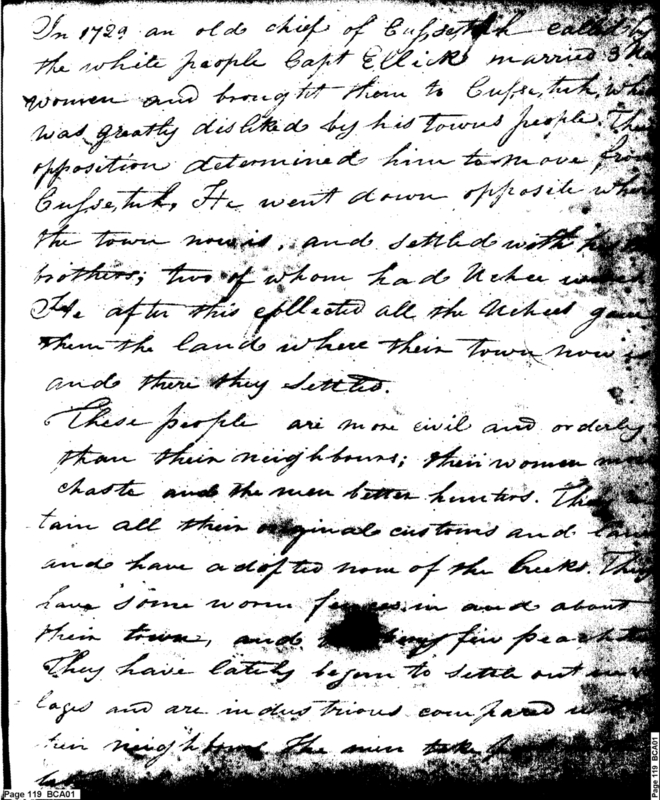 In 1729 an old chief of Cussetuh called by
the white people Capt Ellick married 3
women and brought them to Cussetuh, who
was greatly disliked by his towns people. Their
opposition determined him to move from
Cussetuh, He went down opposite where
the town now is, and settled with his
brothers; two of whom had Uchee
He after this collected all the Uchees gave
them the land where their town now is
and there they settled.
These people are more civil and orderly
than their neighbours; their women more
chaste and the men better hunters. They
tain all their original customs and laws
and have adopted none of the Creeks. They
have some worm fences in and about
their town, and few peach
They have lately begun to settle out in
lages and are industrious compared with
their neighbours The men take
Page 119 BCA01
Page 119 BCA01